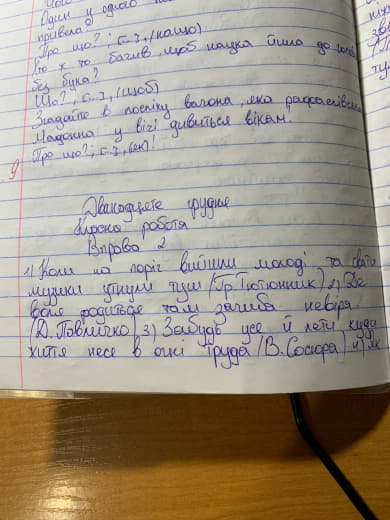 Один у одного
привела?
Про що?; [–], (нащо)
Хто ж то бачив, щоб наука йшла до голови
без бука?
Що?, [...], (щоб)
Згадайте в поспіху вагона, яка рафаелівська
Мадонна у вічі дивиться вікам.
Про що?; [–], (як)!
9
Дванадцяте грудня
Класна робота
Вправа 2
1) Коли на поріг вийшли молоді та свати
музики утнули туш (Гр. Тютюнник) 2) Де
воля родиться там загиба невіра
(Д. Павличко) 3) Забудь усе й лети куди
життя несе в огні труда (В. Сосюра) 4) Як